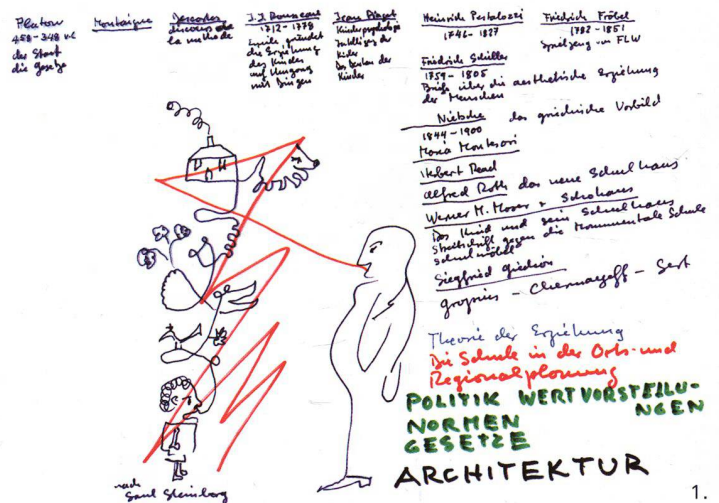 Platon
428-348 v.c
der Staat
die Gesetze
Montaigne
Descartes
discours de
la methode
J.J. Rousseau
1712-1778
Emile
die Erziehung
des Kindes
und Umgang
mit Dingen
Jean Piaget
Kinderpsychologie
Intelligenz der
Kinder
Das Denken der
Kinder
Heinrich Pestalozzi
1746-1827
Friedrich Fröbel
1782-1851
Spielzeug von FLW
Friedrich Schiller
1759-1805
Briefe über die aesthetische Erziehung
der Menschen
Nietsche das griechische Vorbild
1844-1900
Maria Montesori
Herbert Read
Alfred Roth das neue Schulhaus
Werner M. Moser + Schohaus
Das Kind und sein Schulhaus
Streitschrift gegen die Monumentale Schule
Schulmöbel
Siegfried Giedion
gropius - Chermayeff - Sert
Theorie der Erziehung
Die Schule in der Orts- und
Regionalplanung
POLITIK WERTVORSTELLU-
NGEN
NORMEN
GESETZE
ARCHITEKTUR
nach
Saul Steinberg
1.